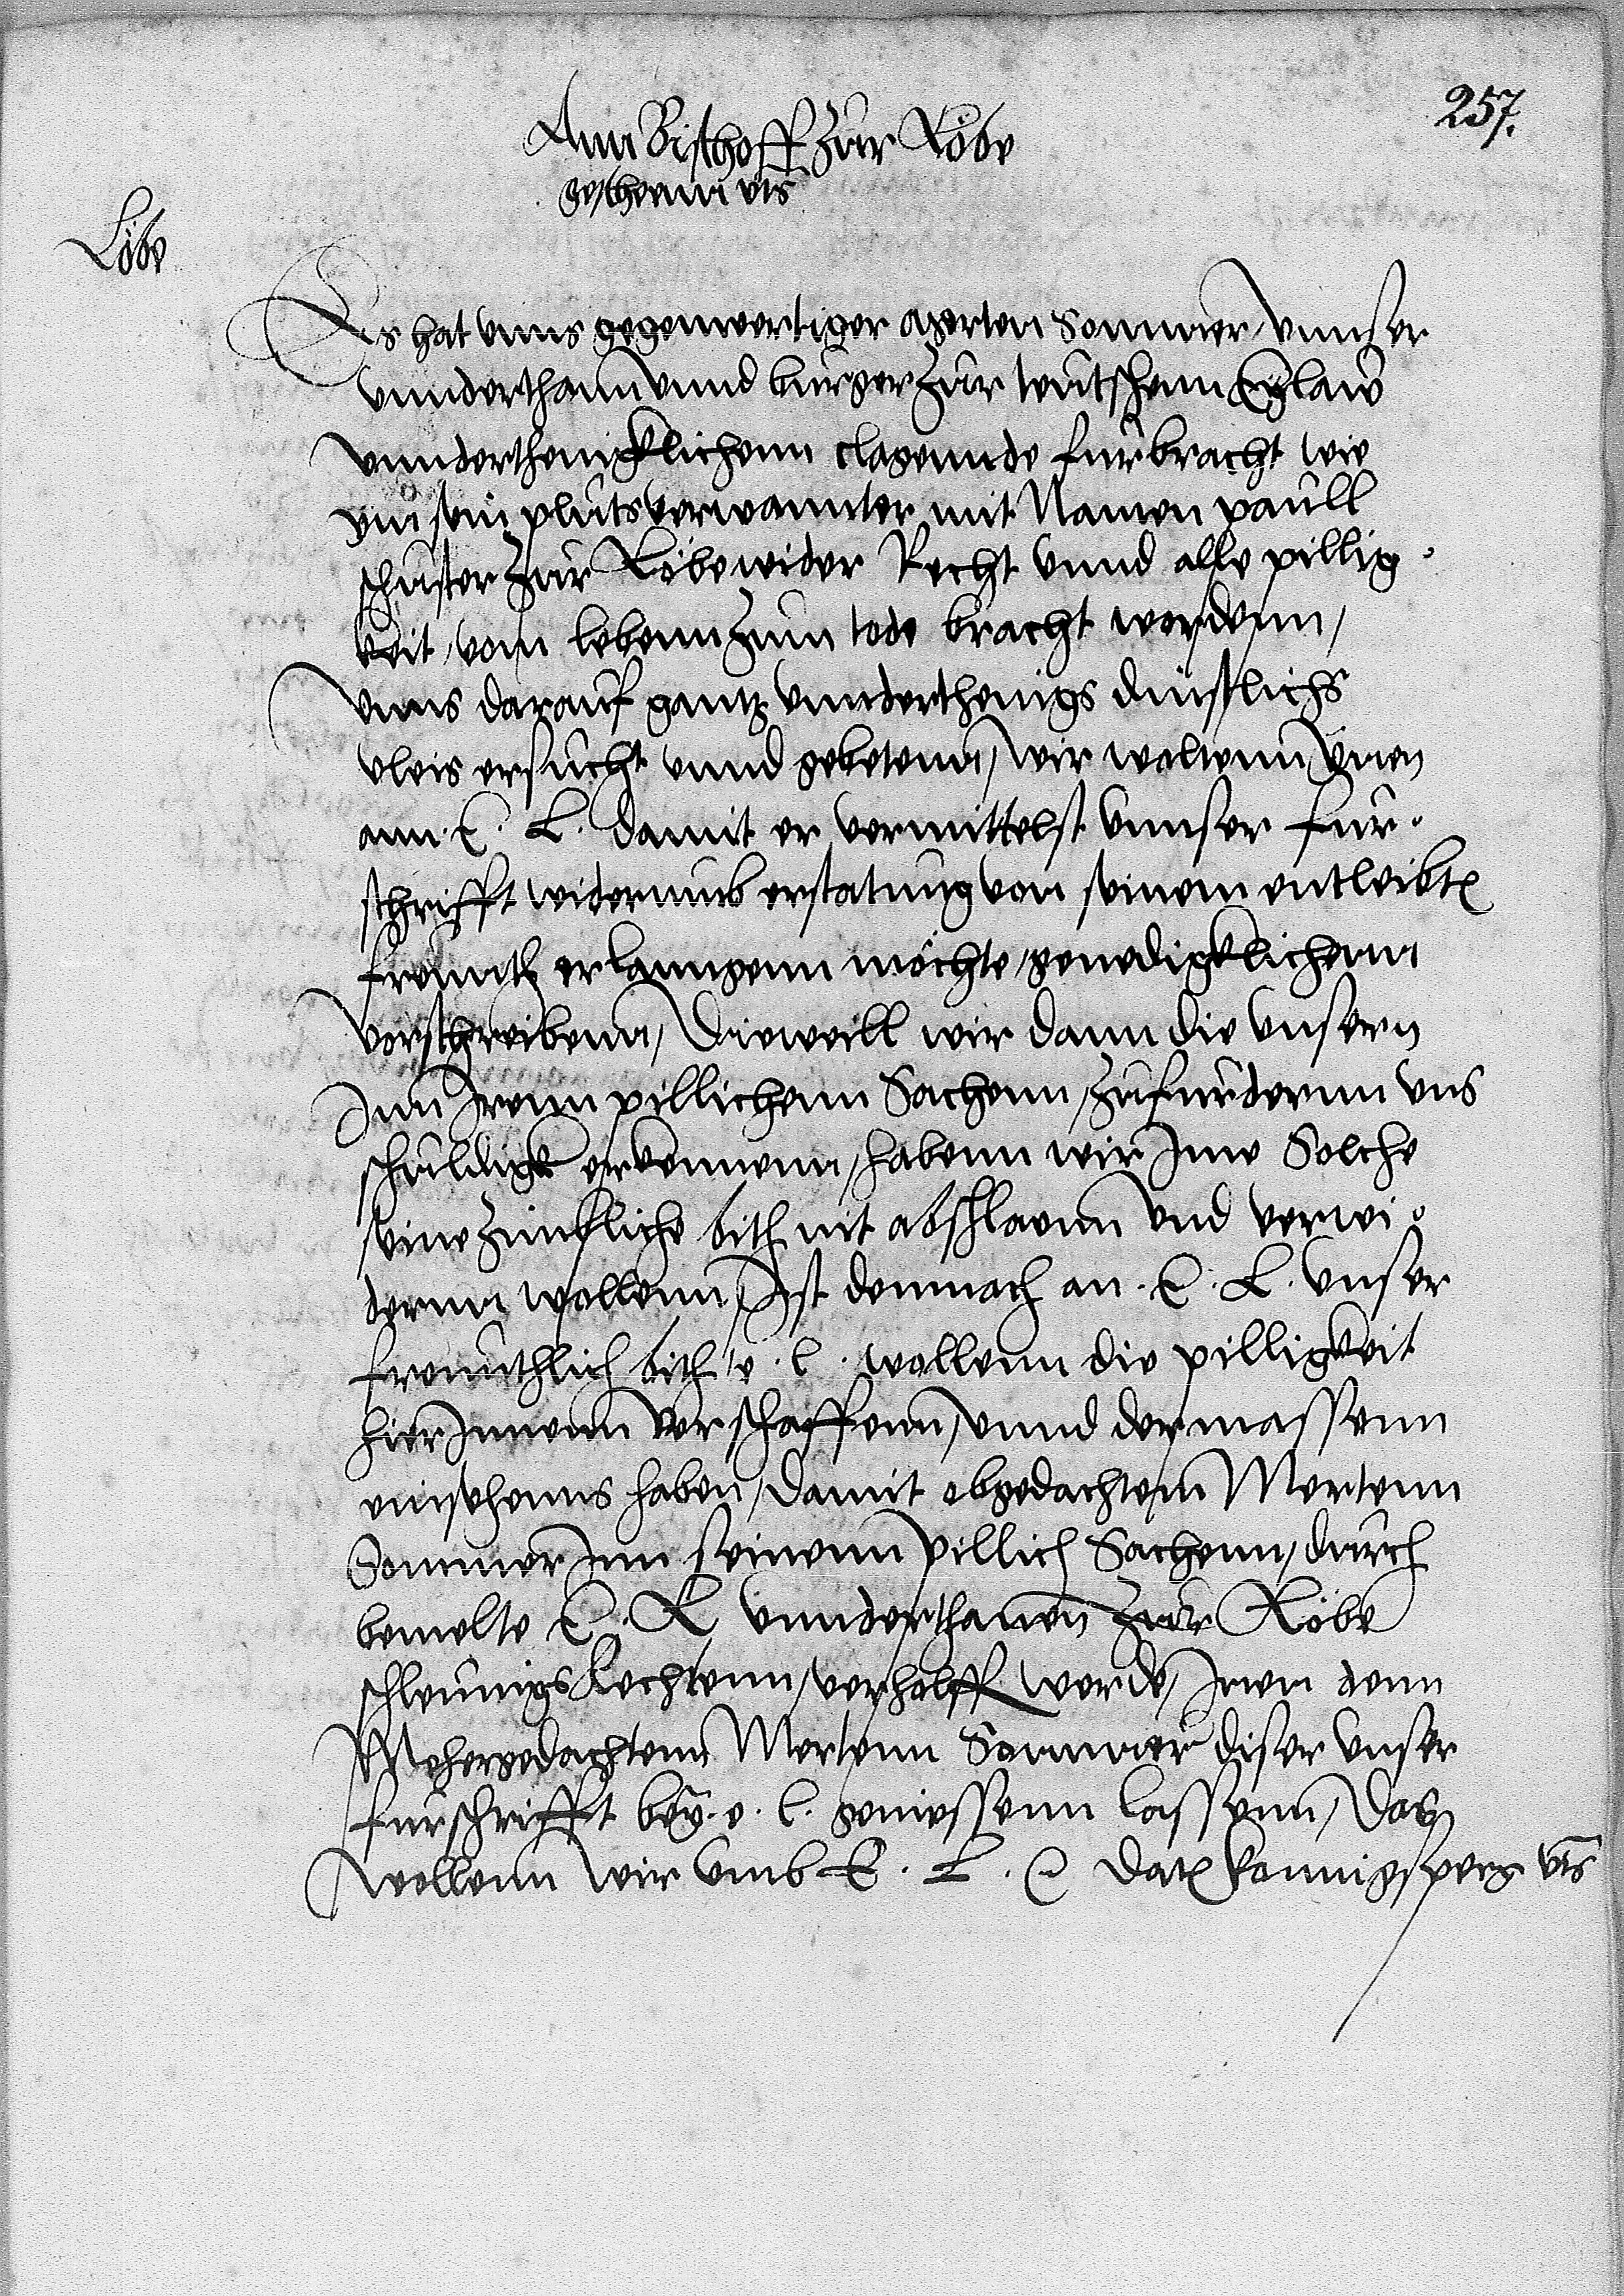 257.
Ann Bischoff zur Löbe
geschrieben uts
Löbe
Es hat unns gegenwertiger Merten Sommer, unnser
unnderthann unnd burger zur teutschenn Eylaw
unnderthenigklichenn clagennde furbracht wie
im sein pluts verwannter mit Namen paull
schuster zur Löbe wider Recht unnd alle pillig
keit, vom lebenn zum tode bracht wordenn,
unns darauf gantz unnderthenigs dinstlichs
vleis ersucht unnd gebetenn, wir woltenn Inen
ann. E. L. damit er vermittelst unnser fur
schrifft widerumb erstatung von seinem entleibten
freunth erlanngenn möchte, genedigklichenn
vorschreibenn, Dieweill wir dann die unsern
Inn Irenn pillichenn Sachenn, zufurdernn uns
schuldigk erkennenn, habenn wir Ime Solche
seine zimliche bith nit abschlaenn und verwi
dernn wollenn, Ist demnach an. E. L. unser
freunthlich bith e. l. wollenn die pilligkeit
hier Innenn verschaffenn, unnd dermassenn
einsehenns haben, damit obgedachtem Mertenn
Sommer Inn seinenn pillich Sachenn, durch
bemelte E. L. unnderthanen zur Löbe
schleunigs Rechtenn, verholff werde, Inen denn
Mehergedachtenn Mertenn Sommer diser unser
furschrifft bey. e. l. geniessenn lassenn, Das
wollenn wir umb E. L. Dat Konnigsperg uts